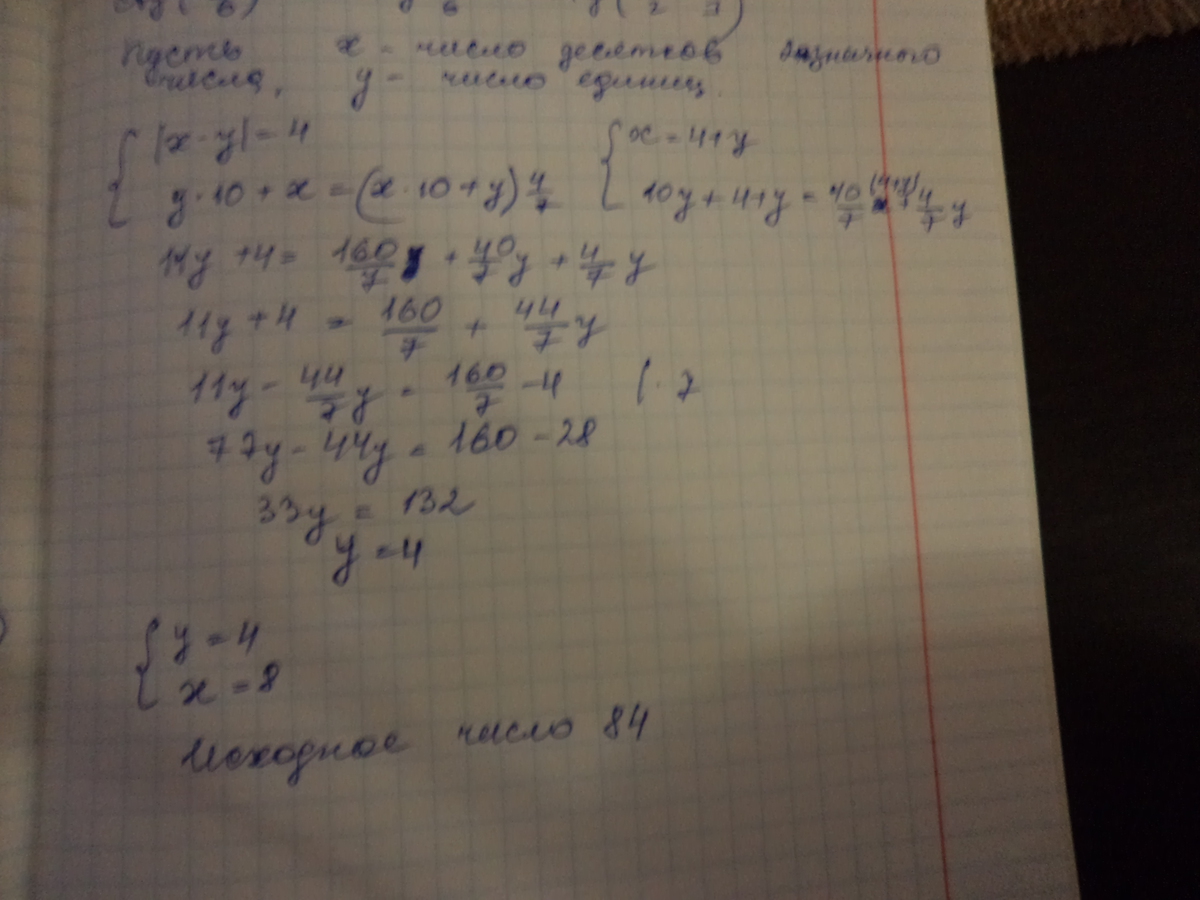 Пусть x - число десятков значного
числа, y - число единиц.
{ |x - y| = 4
y · 10 + x = (x · 10 + y) 4/7
{ x = 4 + y
10y + 4 + y = 40/7 (4+y) + 4/7 y
11y + 4 = 160/7 + 40/7 y + 4/7 y
11y + 4 = 160/7 + 44/7 y
11y - 44/7 y = 160/7 - 4 | · 7
77y - 44y = 160 - 28
33y = 132
y = 4
{ y = 4
x = 8
Исходное число 84